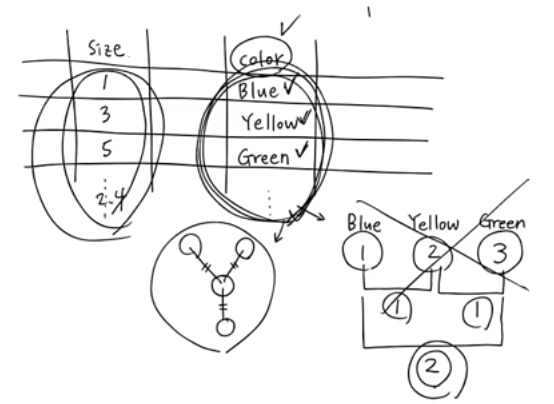 Size color
1 Blue ✓
3 Yellow ✓
5 Green ✓
2.4
Blue Yellow Green
1 2 3
1 1
2